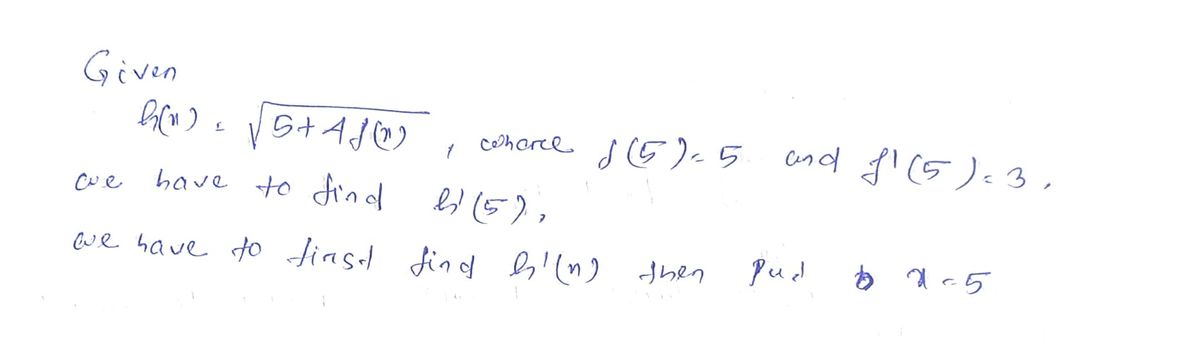 Given
h(x) = √5+4f(x) , where f(5) = 5 and f'(5) = 3 .
we have to find h'(5),
we have to first find h'(x) then put x = 5